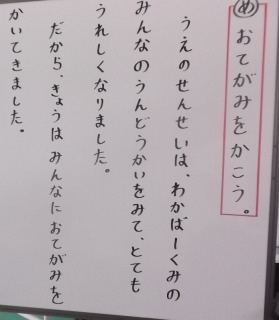 め おてがみをかこう。
うえのせんせいは、わかばーくみの
みんなのうんどうかいをみて、とても
うれしくなりました。
だから、きょうは みんなにおてがみを
かいてきました。